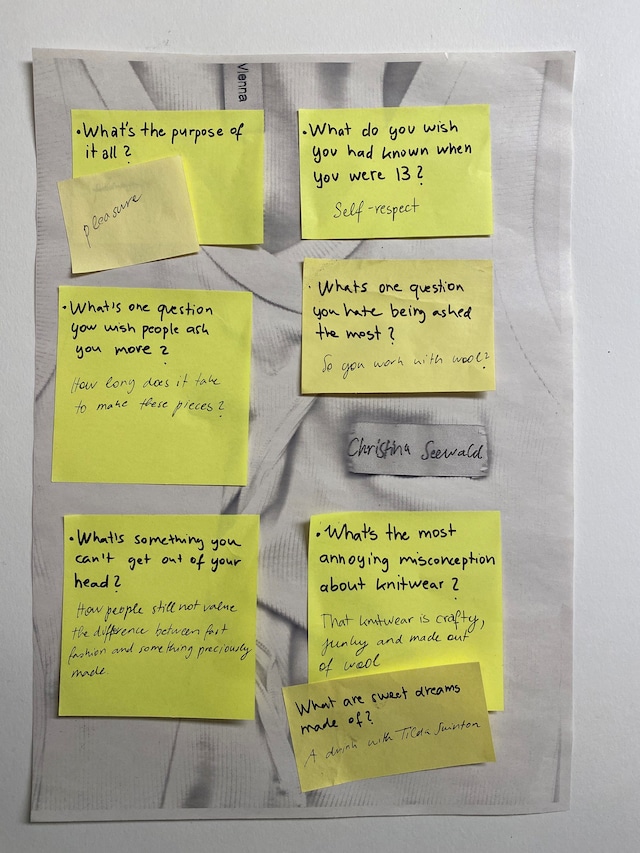 Vienna
•What's the purpose of
it all?
pleasure
•What do you wish
you had known when
you were 13?
Self-respect
•What's one question
you wish people ask
you more?
How long does it take
to make these pieces?
•Whats one question
you hate being asked
the most?
So you work with wool?
Christina Seewald
•What's something you
can't get out of your
head?
How people still not value
the difference between fast
fashion and something preciously
made.
•What's the most
annoying misconception
about knitwear?
That knitwear is crafty,
funky and made out
of wool
What are sweet dreams
made of?
A drink with Tilda Swinton